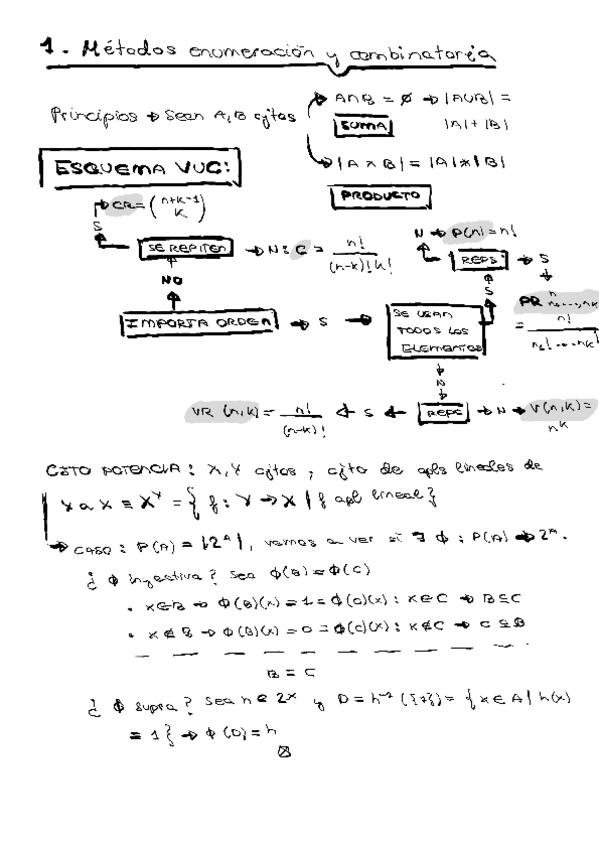 1. Métodos enumeración y combinatoria
Principios → Sean A,B cjtos
A∩B = ∅ → |A∪B| =
|A| + |B|
SUMA
|A × B| = |A|*|B|
PRODUCTO
ESQUEMA VUC:
CR = (n+k-1 k)
S
SE REPITEN → N: C = n! / (n-k)! k!
NO
IMPORTA ORDEN → S →
SE USAN
TODOS LOS
ELEMENTOS
N → P(n) = n!
REPS → S
S
PR n n₁,...,nk
= n! / n₁! ... nk!
N
VR (n,k) = n! / (n-k)! ← S ← REPS → N → V(n,k) =
n^k
CJTO POTENCIA: X,Y cjtos, cjto de apls lineales de
Y a X ≡ X^Y = { f: Y → X | f apl lineal }
→ CASO: P(A) = |2^A|, vamos a ver si ∃ ϕ: P(A) → 2^A.
¿ ϕ inyectiva? Sea ϕ(B) = ϕ(C)
• x∈B → ϕ(B)(x) = 1 = ϕ(C)(x): x∈C → B⊆C
• x∉B → ϕ(B)(x) = 0 = ϕ(C)(x): x∉C → C⊆B
B = C
¿ ϕ supra? Sea h ∈ 2^X y D = h⁻¹({1}) = { x∈A | h(x)
= 1 } → ϕ(D) = h